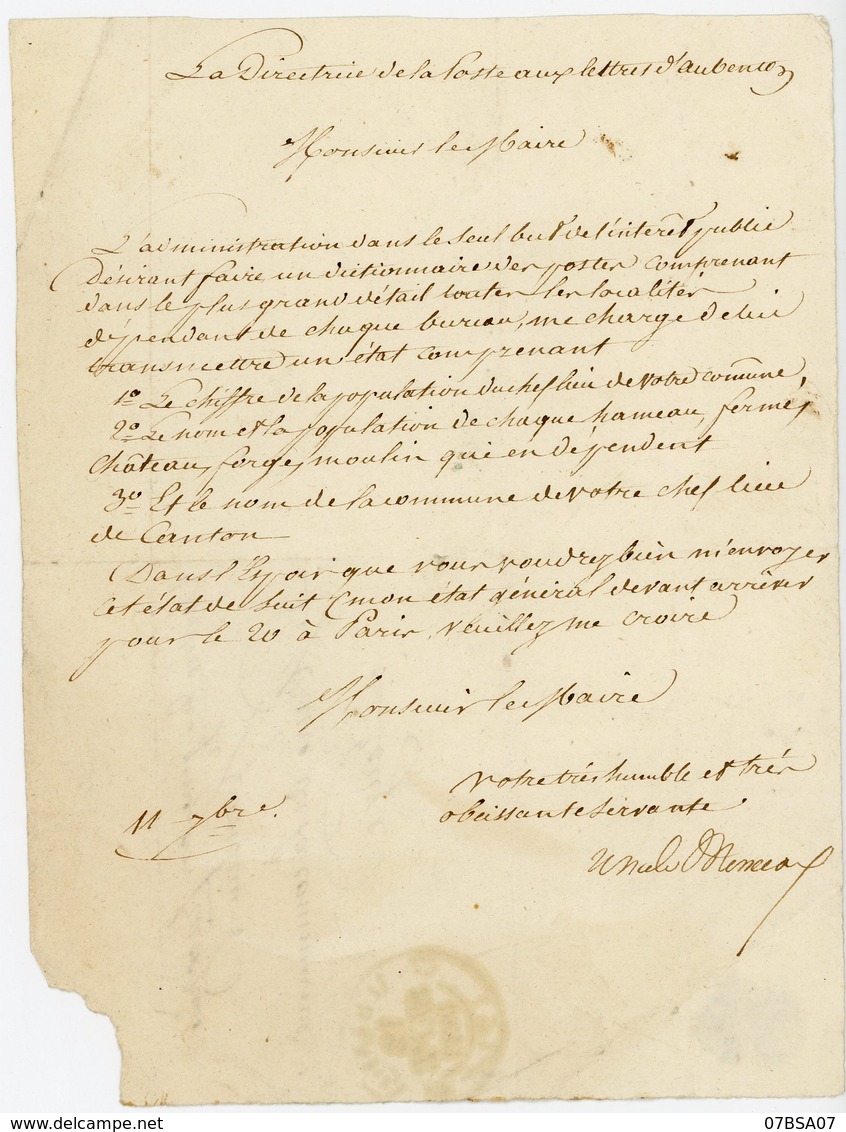 La Directrice de la Poste aux lettres d'aubenton
Monsieur le Maire
L'administration dans le seul but de l'intérêt public
Désirant faire un dictionnaire des postes comprenant
dans le plus grand détail toutes les localités
dépendant de chaque bureau, me charge de lui
transmettre un état comprenant
1º Le chiffre de la population du chef lieu de votre comune,
2º Le nom et la population de chaque hameau, ferme,
château, forge, moulin qui en dépendent
3º Et le nom de la commune de votre chef lieu
de Canton
Dans l'Espoir que vous voudrez bien m'envoyer
cet état de suit (mon état général devant arriver
pour le 20 à Paris, veuillez me croire
Monsieur le Maire
votre très humble et très
obéissante servante
11 7bre.
07BSA07